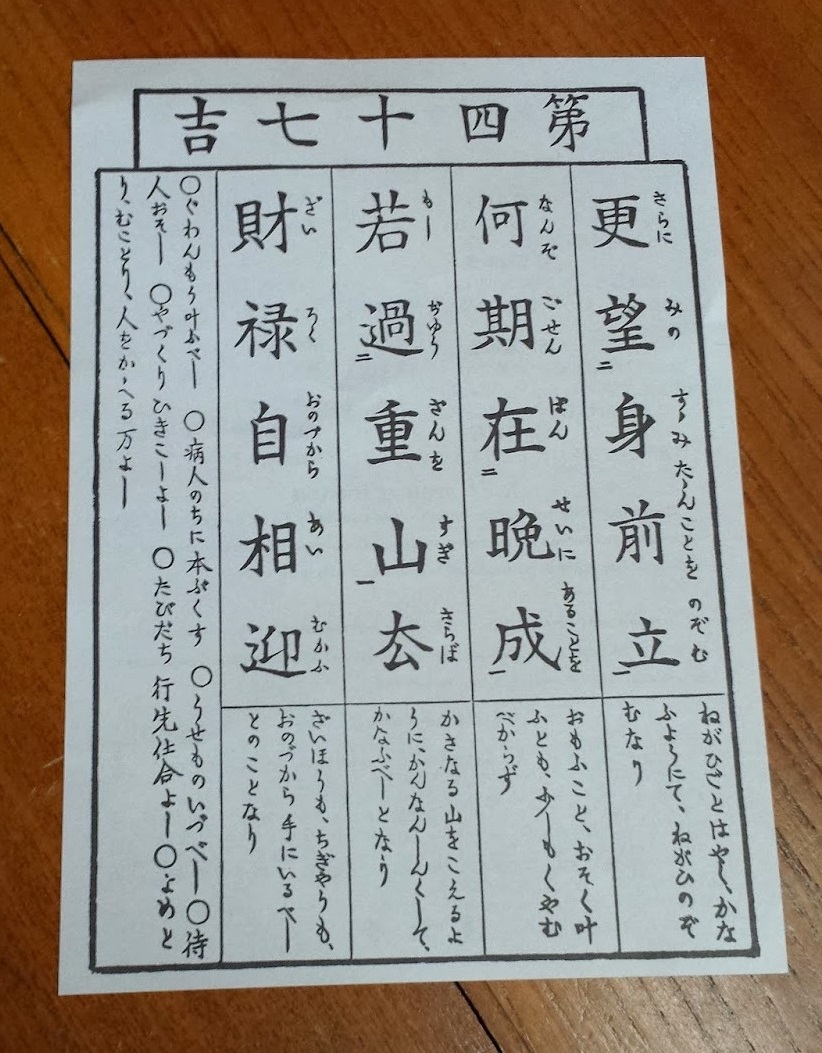 第四十七吉
更望身前立
さらに みの すゝみたゝんことを のぞむ
ねがひごとはやく、かな
ふようにて、ねがひのぞ
むなり
何期在晩成
なんぞ ごせん ばん せいに あることを
おもふこと、おそく叶
ふとも、少しもくやむ
べからず
若過重山去
もし おゆう ざんを すぎ さらば
かさなる山をこえるよ
うに、かんなんしんくして、
かなふべしとなり
財禄自相迎
ざい ろく おのづから あい むかふ
ざいほうも、ちぎやうも、
おのづから手にいるべし
とのことなり
○ぐわんもう叶ふべし ○病人のちに本ぷくす ○うせものいづべし○待
人おそし ○やづくりひきこしよし ○たびだち行先仕合よし○よめと
り、むことり、人をかゝへる万よし